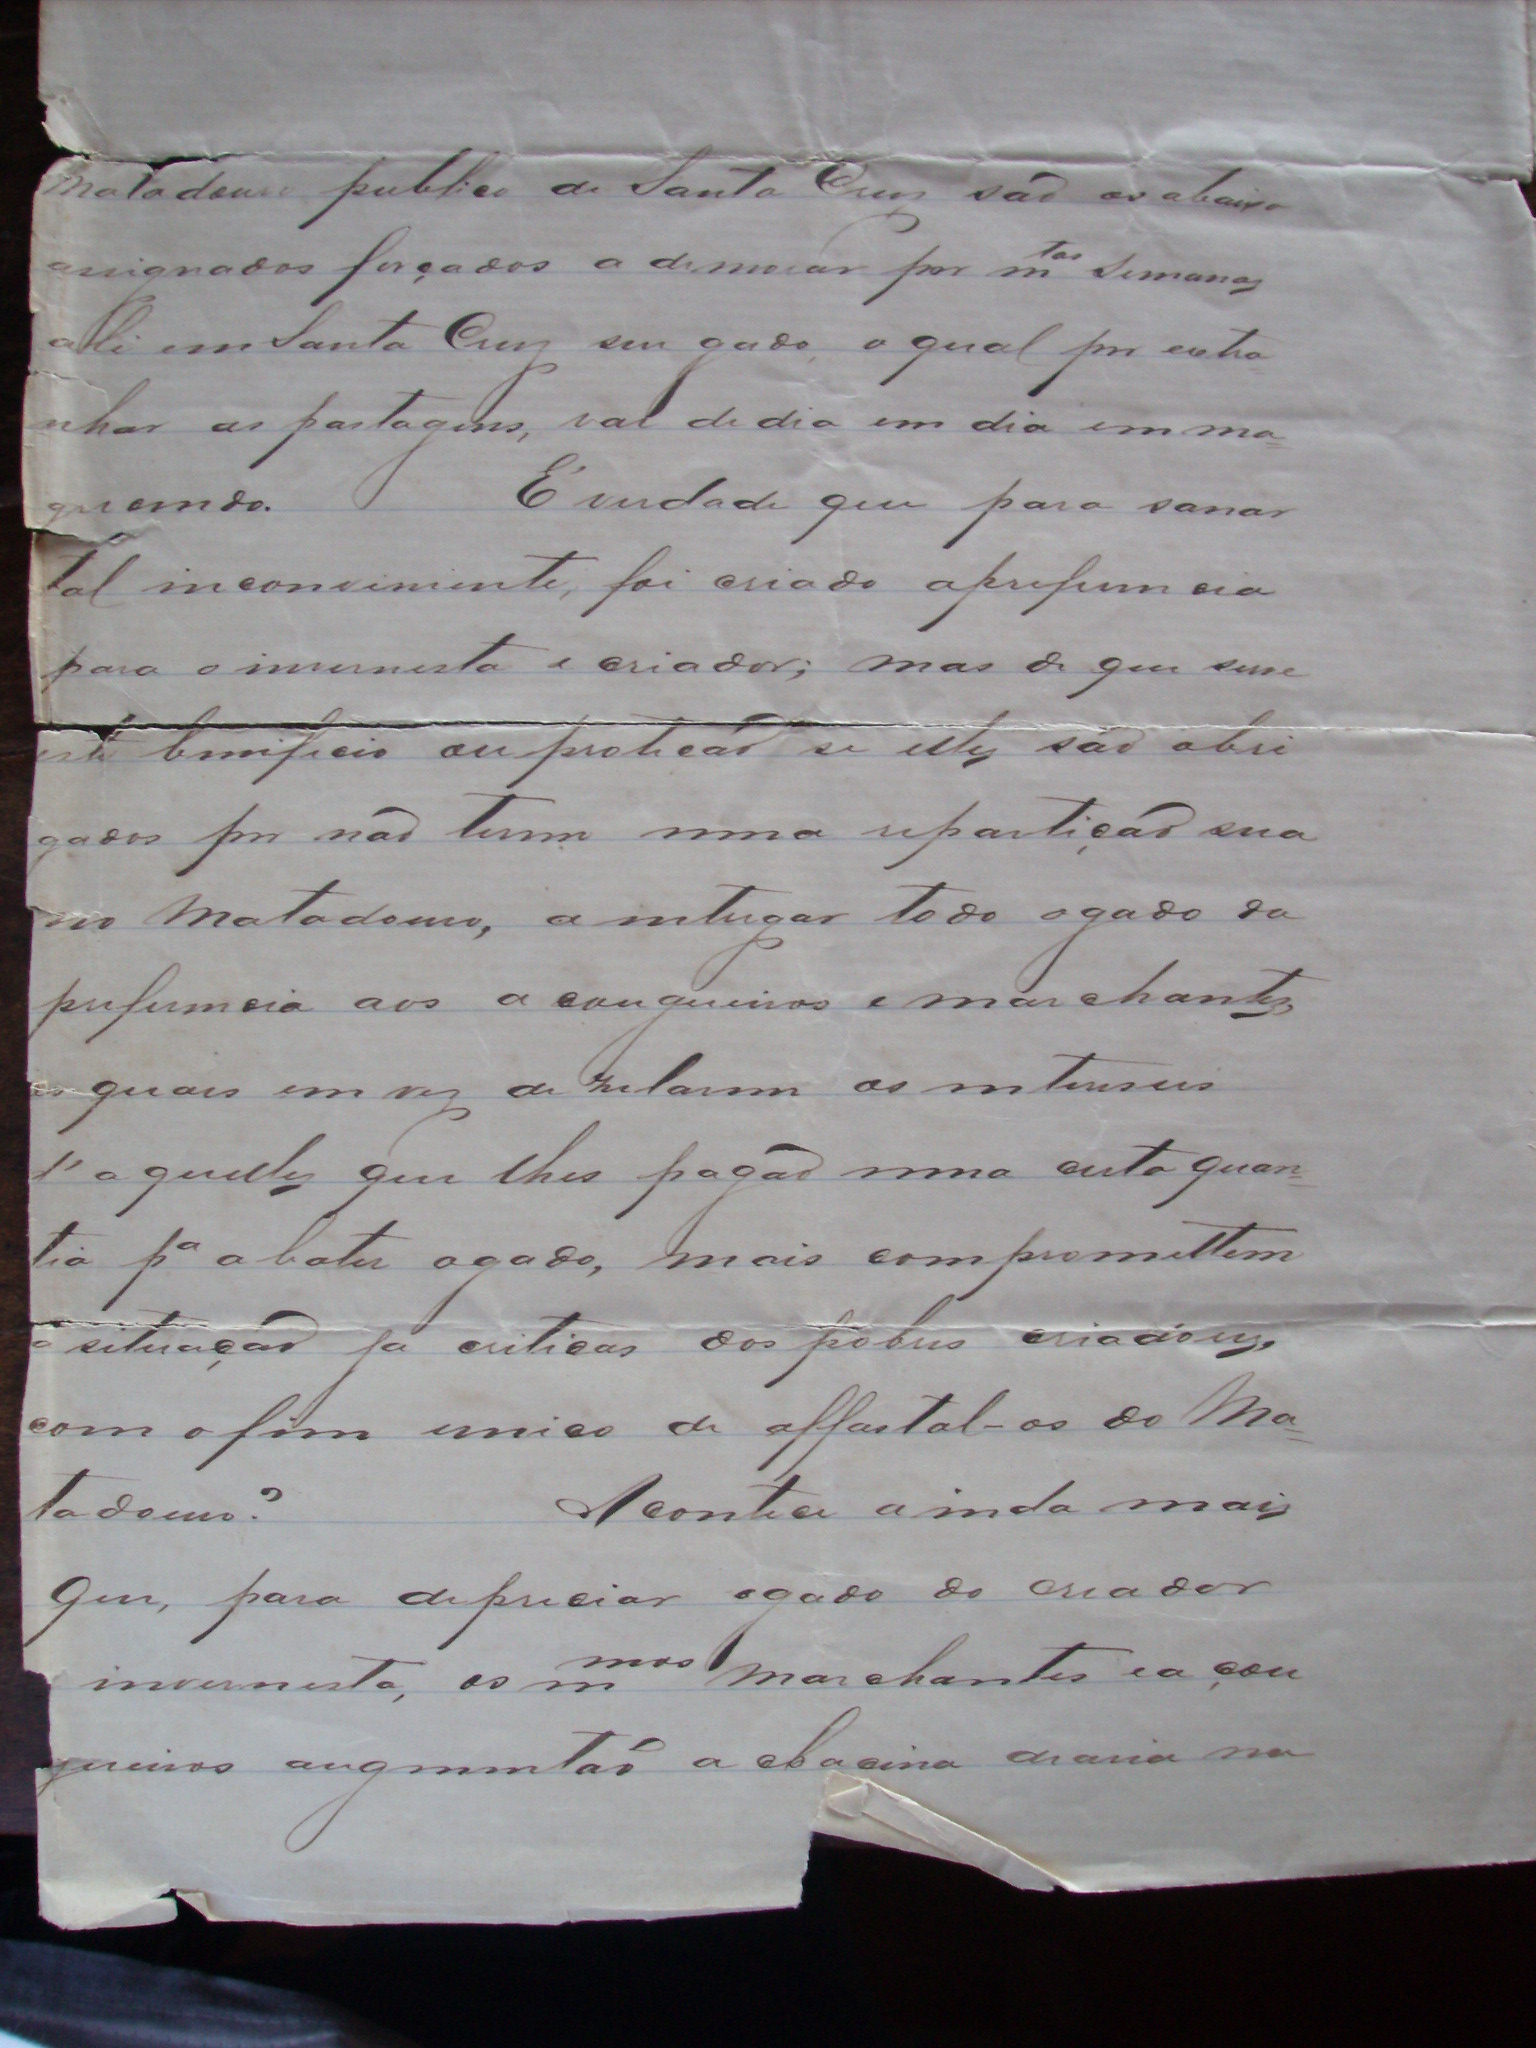 Matadouro publico de Santa Cruz são os abaixo
assignados forçados a demorar por m.tas Semanas
ali em Santa Cruz seu gado, o qual por extra
nhar as pastagens, vai de dia em dia emma=
grecendo. É verdade que para sanar
tal inconveniente, foi criado a preferencia
para o invernista e criador; mas de que serve
este beneficio ou proteção se elles são obri
gados por não terem uma repartição sua
no Matadouro, a entregar todo o gado da
preferencia aos açougueiros e marchantes
os quaes em vez de zelarem os interesses
d'aquelles que lhes pagão uma certa quan=
tia pª abater o gado, mais compromettem
a situação ja criticas dos pobres criadores,
com o fim unico de affastal-os do Ma=
tadouro? Acontece ainda mais
que, para depreciar o gado do creador
invernista, os m.mos Marchantes e açou
gueiros augmentão a chacina diaria na